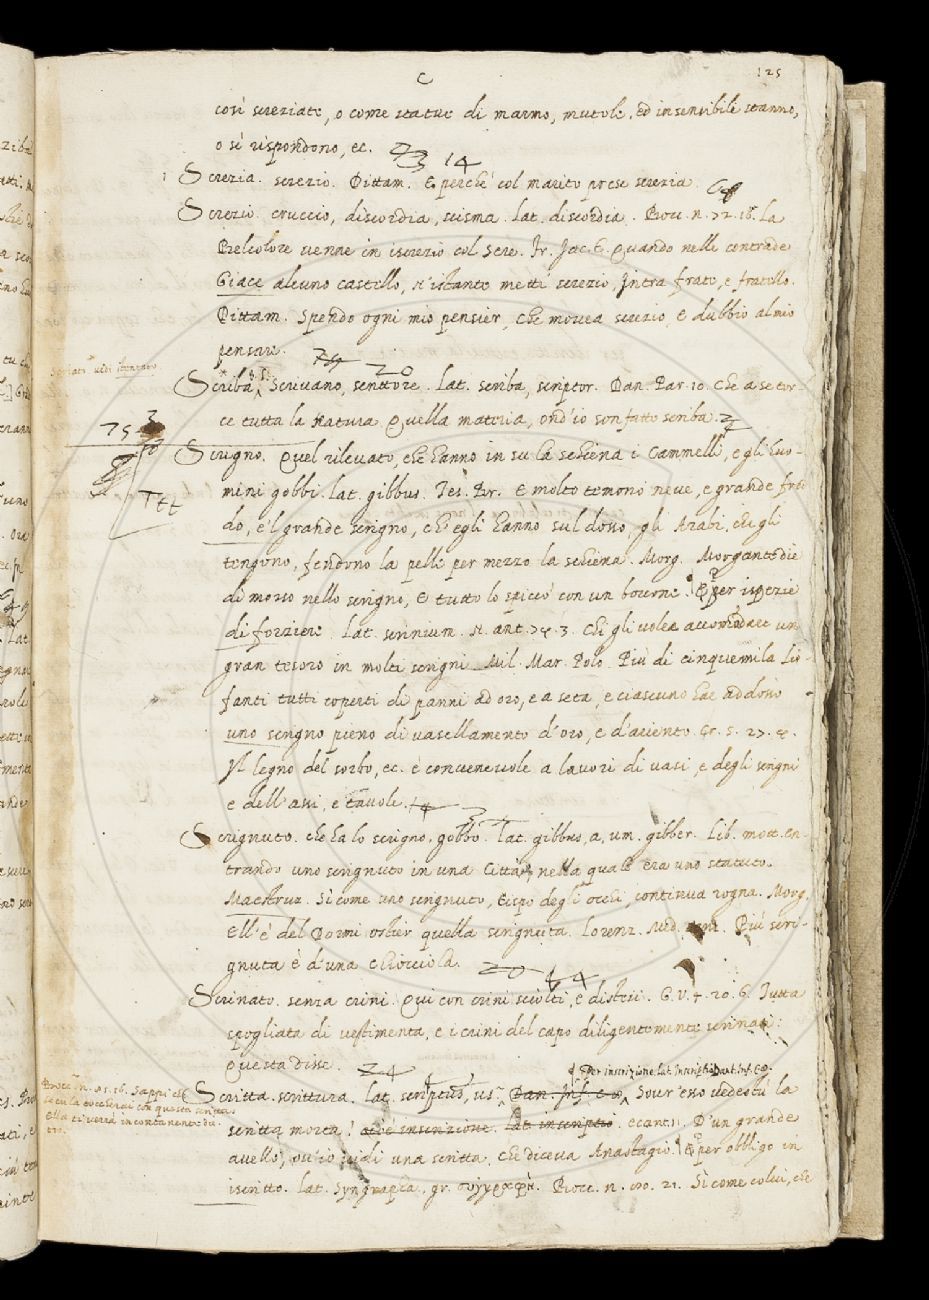 C
125
così screziate, o come statue di marmo, mutole, ed insensibili stanno,
o sì rispondono, ec. 14
Screzia. screzio. Dittam. E perche' col marito prese screzia.
Screzio. cruccio, discordia, scisma. Lat. discordia. Bocc. n. 72. 16. La
Belcolore venne in iscrezio col sere. Fr. Jac. T. Quando nelle contrade
Giace alcuno castello, N'istante metti screzio, Intra frate, e fratello.
Dittam. Spendo ogni mio pensier, che movea screzio, E dubbio al mio
pensare.
20
Scriba, Scrivano, scrittore. Lat. scriba, scriptor. Dan. Par. 10. Che a se tor-
ce tutta la Natura Quella materia, ond'io son fatto scriba.
75
Scrigno. Quel rilevato, che hanno in su la schiena i Cammelli, e gli huo-
mini gobbi. Lat. gibbus. Tes. Br. E molto temono neve, e grande fred-
Ttt
do, e'l grande scrigno, ch'egli hanno sul dosso, gli Arabi, che gli
tengono, fendono la pelle per mezzo la schiena. Morg. Morgante die
di morso nello scrigno, E tutto lo spiccò con un boccone. E per ispezie
di forziere. Lat. scrinium. N. ant. 74. 3. Che gli volea accomodare un
gran tesoro in molti scrigni. Mil. Mar. Polo. Più di cinquemila Lio-
fanti tutti coperti di panni ad oro, e a seta, e ciascuno hae addosso
uno scrigno pieno di vasellamento d'oro, e d'ariento. Cr. 5. 27. 4.
Il legno del sorbo, ec. è convenevole a lavori di vasi, e degli scrigni
e dell'assi, e tavole.
Scrignuto. che ha lo scrigno. gobbo. Lat. gibbus, a, um. gibber. Lib. mott. En-
trando uno scrignuto in una Città, nella quale era uno statuto.
Maestruz. Sì come uno scrignuto, lispo degli occhi, continua rogna. Morg.
Ell'è del Dormi ostier quella scrignuta. Lorenz. Med. Più scri-
gnuta è d'una chiocciola. 20
Scrinato. senza crini. Qui con crini sciolti, e distesi. G. V. 4. 20. 6. Tutta
spogliata di vestimenta, e i crini del capo diligentemente scrinati:
Questa disse. 24
Per inscrizione. Lat. Inscriptio. Dant. Inf. c. 9.
Bocc. n. 85. 16. Sappi che
se tu la toccherai con questa scritta,
ella ti verrà incontanente die-
tro.
Scritta. scrittura. Lat. scriptus, us. Dan. Inf. c. 8. Sovr'esso vedestù la
scritta morta! inscrizione. Lat. inscriptio. e cant. 11. D'un grande
avello, ov'io vidi una scritta, che diceva Anastagio. E per obbligo in
iscritto. Lat. Syngrapha, gr. συγγραφή. Bocc. n. 80. 21. Sì come colui, che